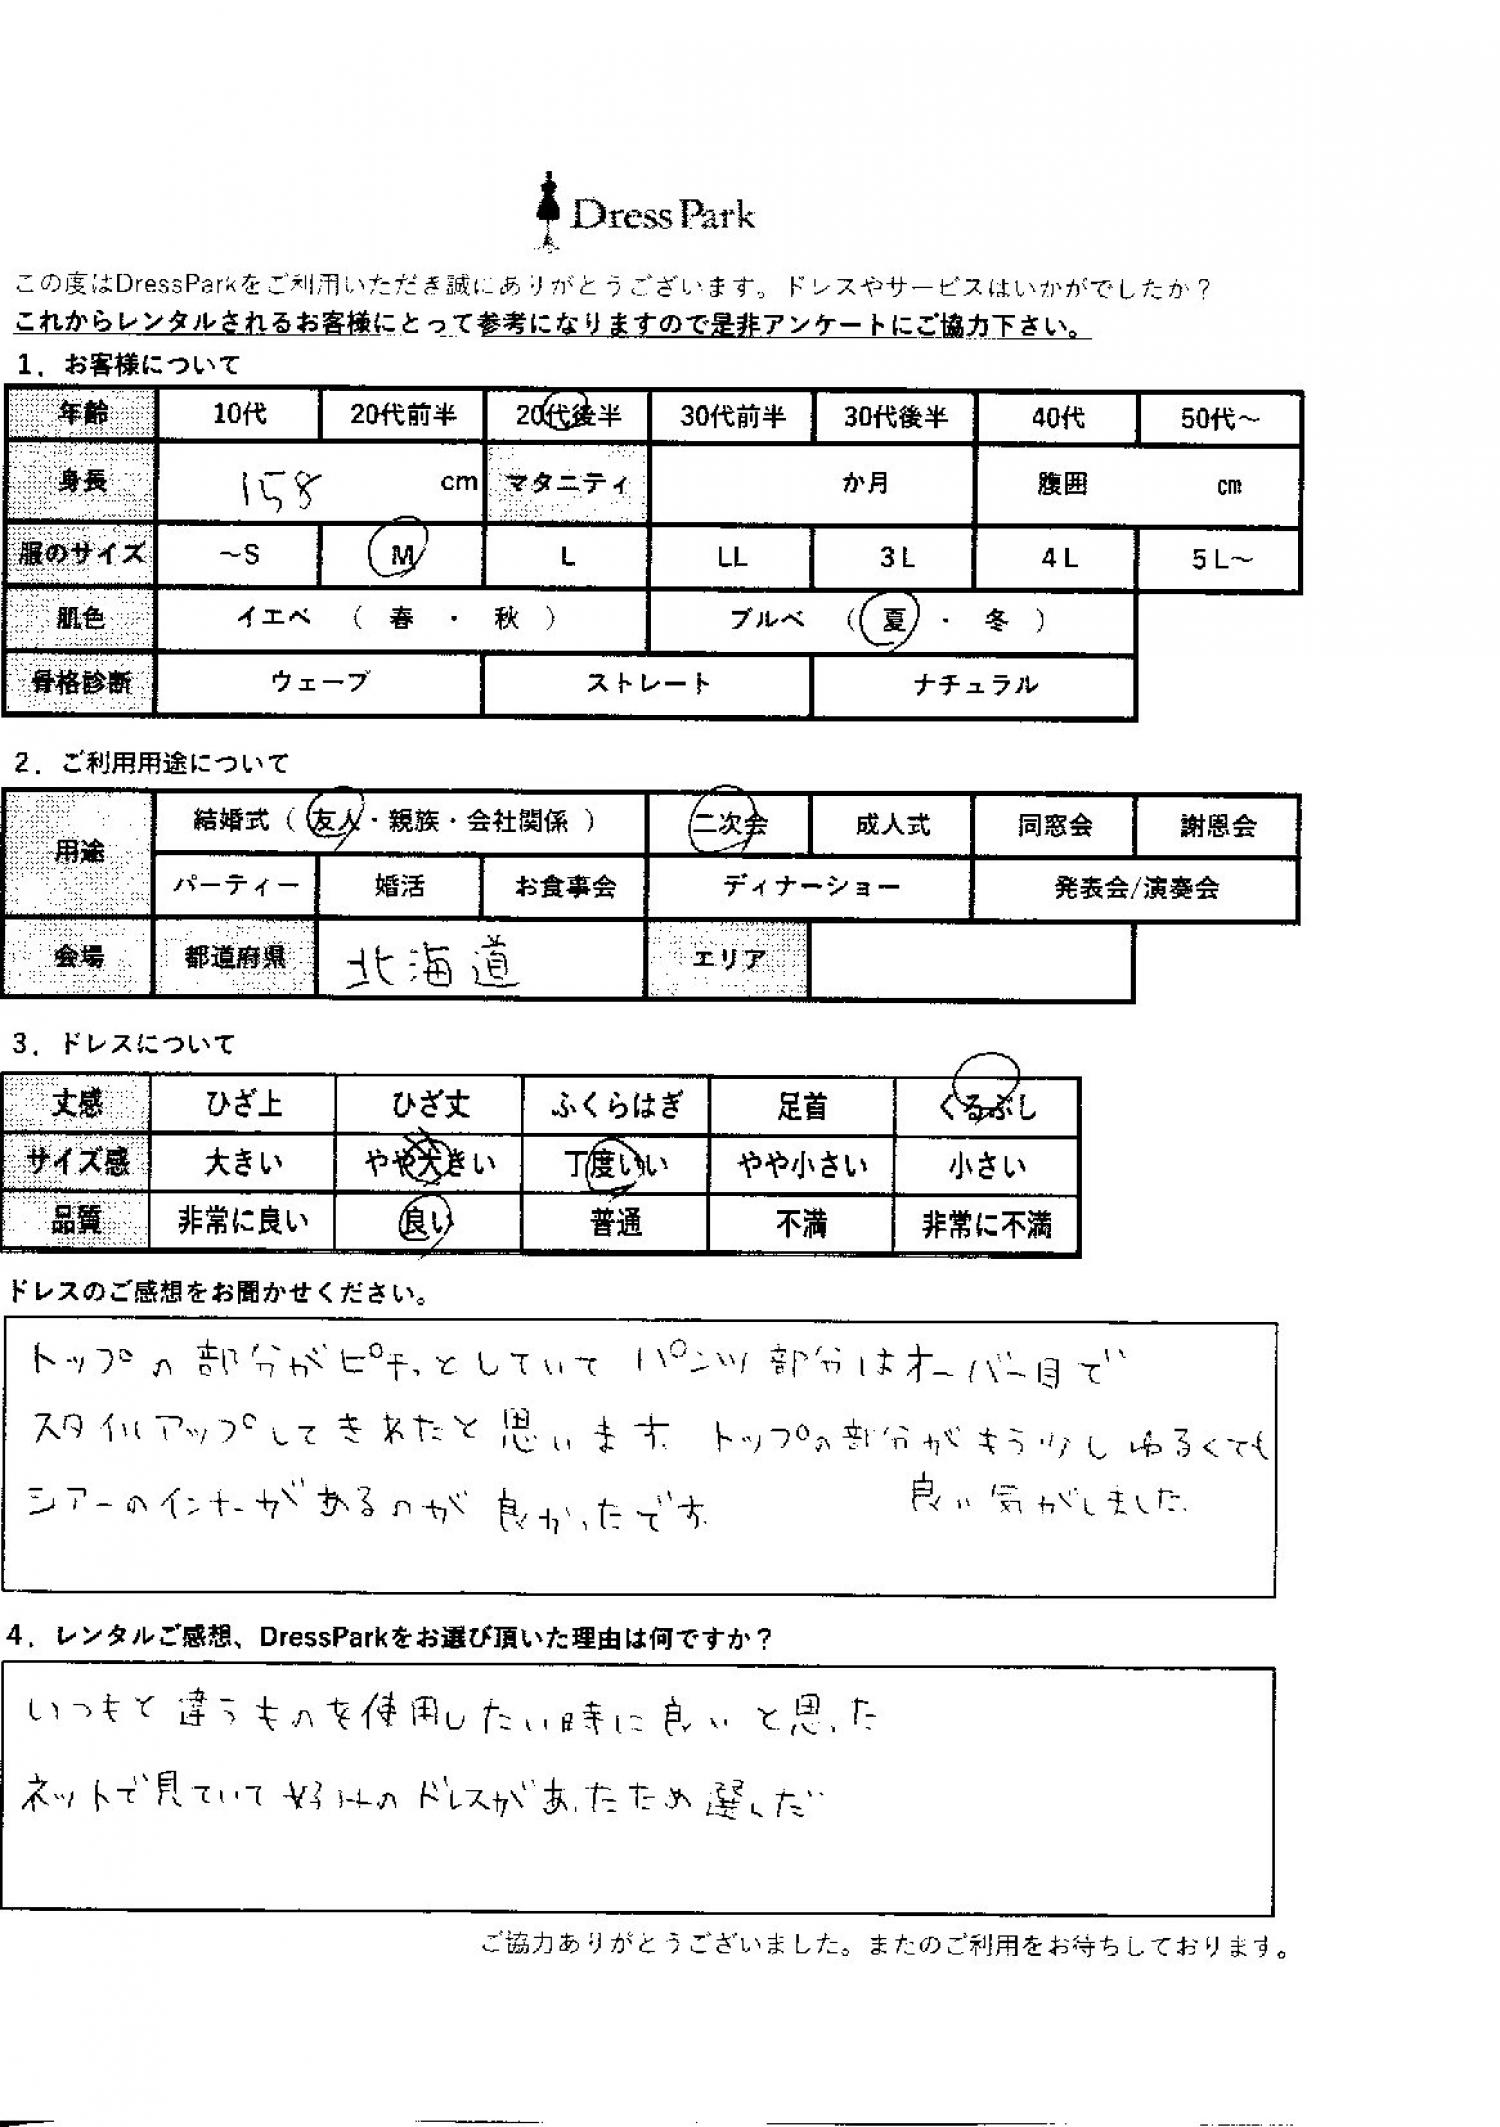 Dress Park
この度はDressParkをご利用いただき誠にありがとうございます。ドレスやサービスはいかがでしたか？
これからレンタルされるお客様にとって参考になりますので是非アンケートにご協力下さい。
1．お客様について
年齢 10代 20代前半 20代後半 30代前半 30代後半 40代 50代～
身長 158 cm マタニティ か月 腹囲 cm
服のサイズ ～S M L LL 3L 4L 5L～
肌色 イエベ （ 春 ・ 秋 ） ブルベ （ 夏 ・ 冬 ）
骨格診断 ウェーブ ストレート ナチュラル
2．ご利用用途について
用途 結婚式（ 友人・親族・会社関係 ） 二次会 成人式 同窓会 謝恩会
パーティー 婚活 お食事会 ディナーショー 発表会/演奏会
会場 都道府県 北海道 エリア
3．ドレスについて
丈感 ひざ上 ひざ丈 ふくらはぎ 足首 くるぶし
サイズ感 大きい やや大きい 丁度いい やや小さい 小さい
品質 非常に良い 良い 普通 不満 非常に不満
ドレスのご感想をお聞かせください。
トップの部分がピチッとしていて パンツ部分はオーバー目で
スタイルアップしてきれたと思います。トップの部分がもう少しゆるくても
良い気がしました。
シアーのインナーがあるのが良かったです。
4．レンタルご感想、DressParkをお選び頂いた理由は何ですか？
いつもと違うものを使用したい時に良いと思った
ネットで見ていて好みのドレスがあったため選んだ
ご協力ありがとうございました。またのご利用をお待ちしております。